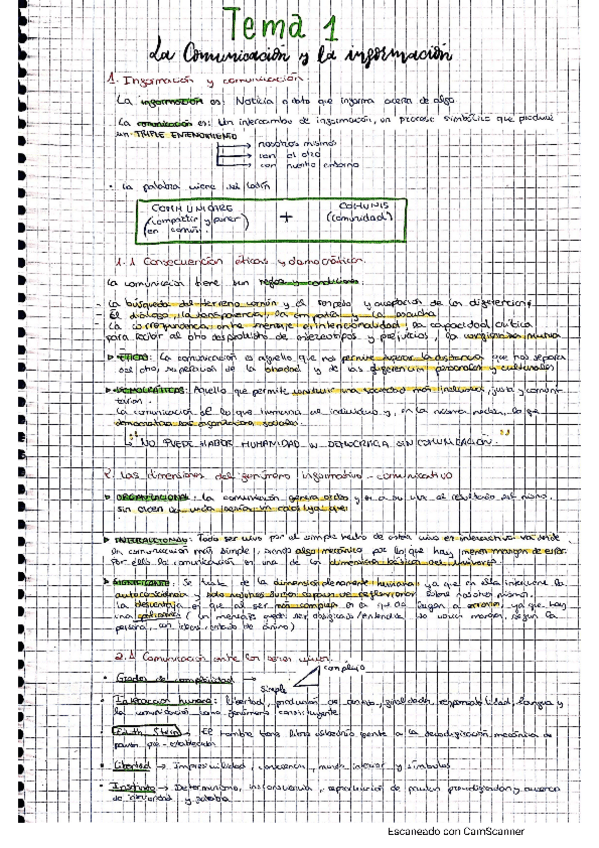 Tema 1
La Comunicación y la información
1. Información y comunicación
La información es: Noticia o dato que informa acerca de algo
La comunicación es: Un intercambio de información, un proceso simbólico que produce
un TRIPLE ENTENDIMIENTO
nosotros mismos
con el otro
con nuestro entorno
· La palabra viene del latín
COMMUNICARE
(compartir y poner
en común)
+
COMUNIS
(comunidad)
1.1 Consecuencias éticas y democráticas.
La comunicación tiene sus reglas y condiciones:
- La búsqueda del terreno común y el respeto y aceptación de las diferencias
- El diálogo, la transparencia, la empatía y la escucha
La correspondencia entre mensaje e intencionalidad, la capacidad crítica
para recibir al otro desprovisto de estereotipos y prejuicios, la
ÉTICAS: La comunicación es aquello que nos permite superar la distancia que nos separa
del otro, su de la y de las diferencias personales y culturales
DEMOCRÁTICAS: Aquello que permite construir una sociedad más justa y
La comunicación es lo que humaniza al individuo y, en la misma medida, lo que
democratiza las sociales.
" NO PUEDE HABER HUMANIDAD NI DEMOCRACIA SIN COMUNICACIÓN. "
2. Las dimensiones del fenómeno informativo - comunicativo
ORGANIZACIONAL: La comunicación genera orden y es a su vez el resultado del mismo,
sin orden
INTERACCIONAL: Todo ser vivo por el simple hecho de estar vivo es interactivo
comunicación más simple, siendo algo mecánico por lo que hay menor margen de error
Por ello la comunicación es una de las dimensiones básicas del universo.
SIGNIFICANTE: Se trata de la dimensión plenamente humana ya que en ella interviene la
autoconciencia y solo nosotros somos capaces de reflexionar sobre nosotros mismos.
La desventaja es que al ser más compleja es en la que se llegan a errores, ya que hay
una (un mensaje puede ser según la
persona, sus ideas, estado de ánimo)
2.1 Comunicación entre los seres vivos.
· Grados de complejidad → Simple complejo
· Interacción humana: libertad, producción de responsabilidad, lengua y
la comunicación como fenómeno constituyente
Edith Stein → El hombre tiene libre albedrío frente a la mecánica de
pautas pre-establecidas
· Libertad → Imprevisibilidad, conciencia, mundo interior y símbolos
· Instinto → Determinismo, inconsciencia, reproducción de pautas y ausencia
de interioridad y
Escaneado con CamScanner